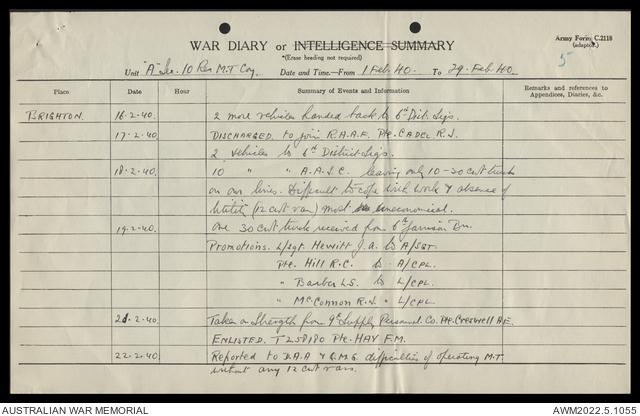 Army Form C.2118
(adapted.)
5
WAR DIARY or INTELLIGENCE SUMMARY
*(Erase heading not required)
Unit "A" Sec. 10 Res M.T Coy. Date and Time.—From 1 Feb 40. To 29. Feb. 40.
Place Date Hour Summary of Events and Information Remarks and references to Appendices, Diaries, &c.
BRIGHTON. 16.2.40. 2 more vehicles handed back to 6th Dist. Sigs.
17.2.40. DISCHARGED to join R.A.A.F. Pte. CADEL R.J.
2 vehicles to 6th District Sigs.
18.2.40. 10 " " A.A.S.C. leaving only 10-30 cwt trucks
on our lines. Difficult to cope with work & absence of
Utility (12 cwt van) most uneconomical.
19.2.40. One 30 cwt truck received from 6th Garrison Bn.
Promotions. L/Sgt. Hewitt J.a. to A/SGT.
Pte. Hill R.C. to A/CPL.
" Barber L.S. to L/CPL.
" McConnon R.J. " L/CPL.
21.2.40. Taken on Strength from 9th Supply Personnel Co. Pte. Creswell A.E.
ENLISTED. T258180 Pte. HAY F.M.
22.2.40. Reported to D.A.A & Q.M.G. difficulties of operating M.T.
without any 12 cwt vans.
AUSTRALIAN WAR MEMORIAL
AWM2022.5.1055